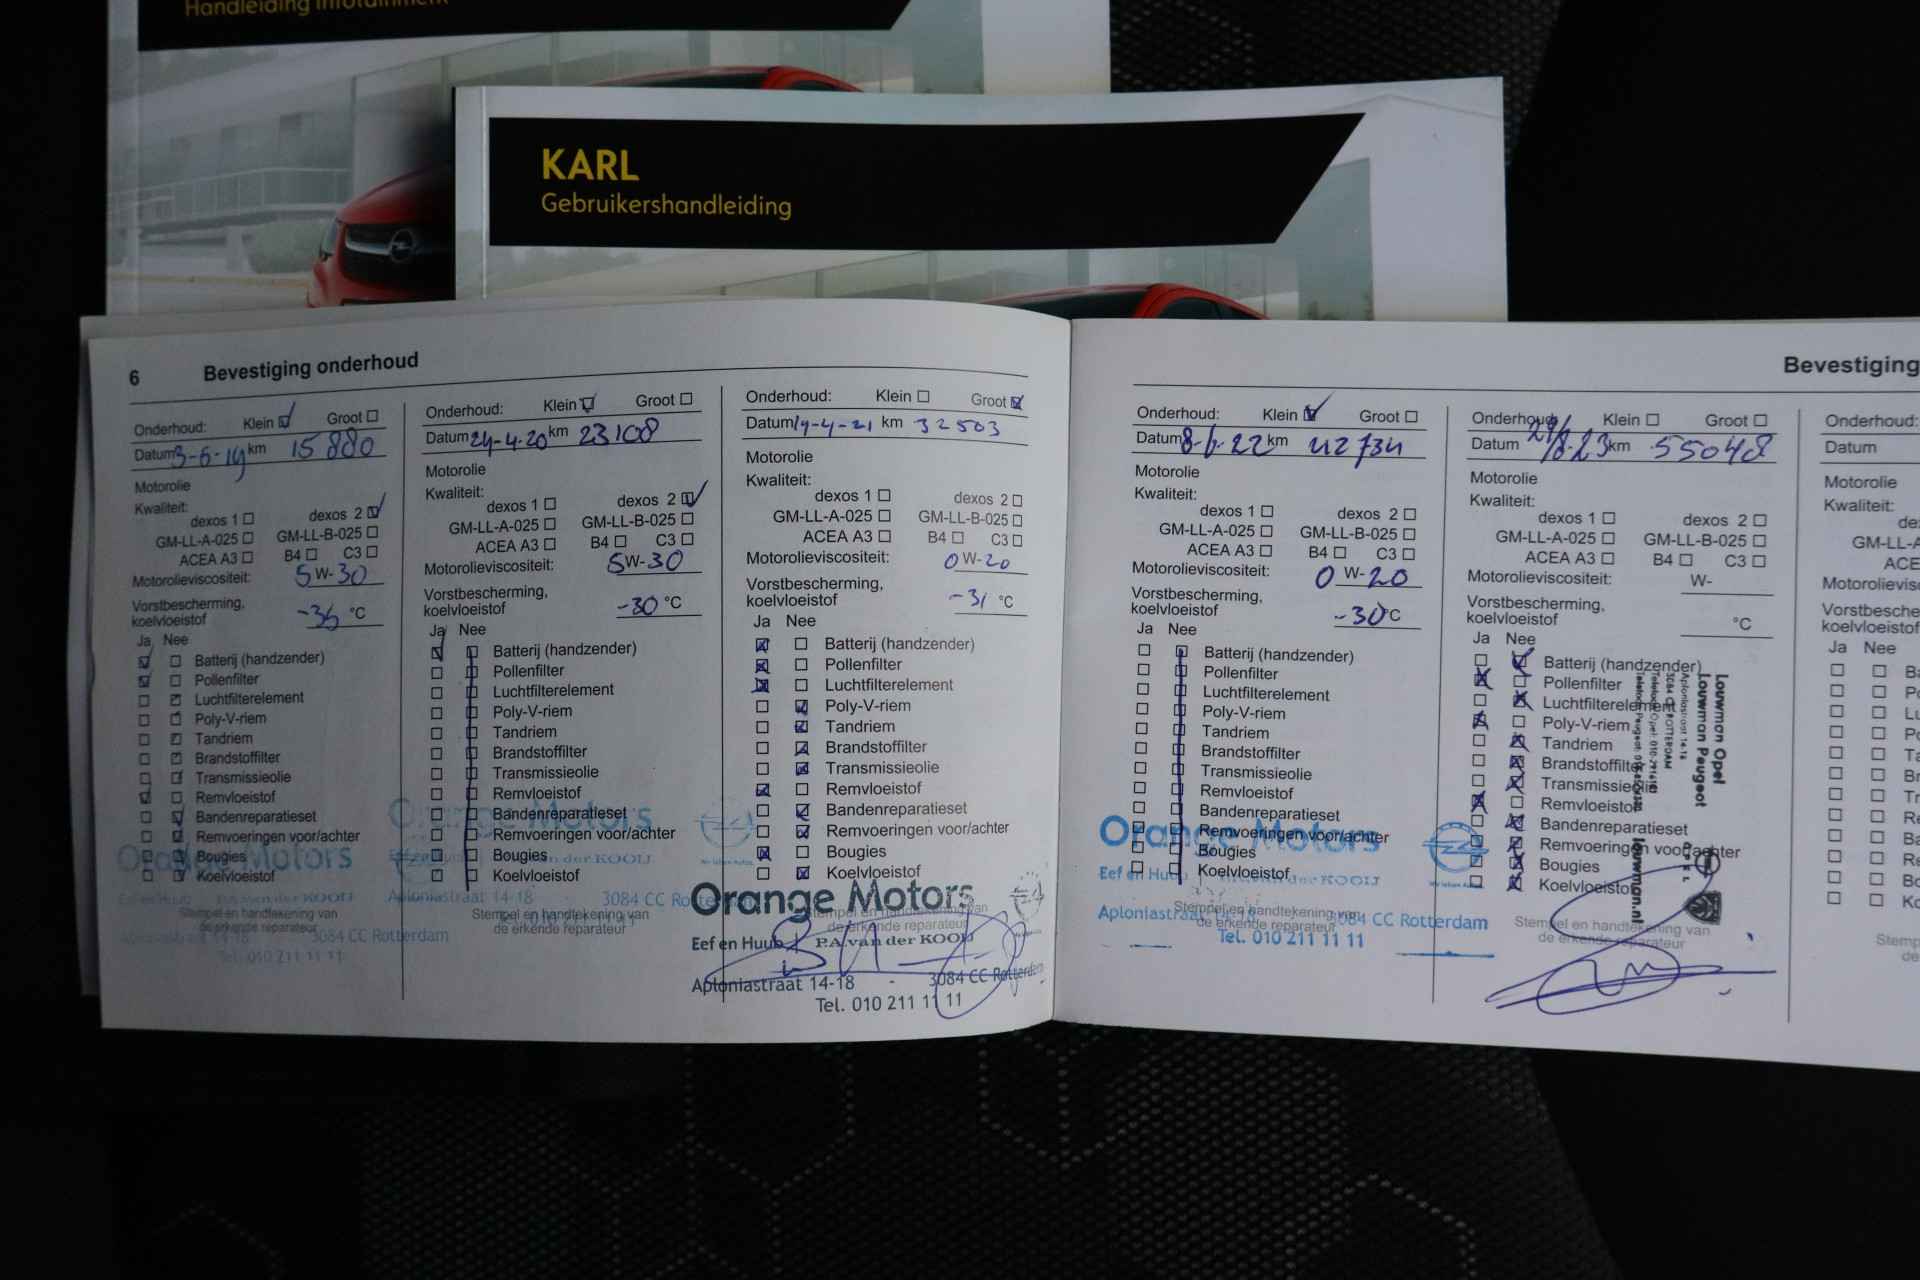 Handleiding Infotainment
KARL
Gebruikershandleiding
6 Bevestiging onderhoud
Onderhoud: Klein Groot
Datum 3-6-19 km 15880
Motorolie
Kwaliteit:
dexos 1 dexos 2
GM-LL-A-025 GM-LL-B-025
ACEA A3 B4 C3
Motorolieviscositeit: 5 W-30
Vorstbescherming,
koelvloeistof °C
Ja Nee
Batterij (handzender)
Pollenfilter
Luchtfilterelement
Poly-V-riem
Tandriem
Brandstoffilter
Transmissieolie
Remvloeistof
Bandenreparatieset
Remvoeringen voor/achter
Bougies
Koelvloeistof
Orange Motors
Eef en Huub P.A. van der KOOIJ
Stempel en handtekening van
de erkende reparateur
Aploniastraat 14-18 3084 CC Rotterdam
Tel. 010 211 11 11
Onderhoud: Klein Groot
Datum 24-4-20 km 23108
Motorolie
Kwaliteit:
dexos 1 dexos 2
GM-LL-A-025 GM-LL-B-025
ACEA A3 B4 C3
Motorolieviscositeit: 5 W-30
Vorstbescherming,
koelvloeistof -30 °C
Ja Nee
Batterij (handzender)
Pollenfilter
Luchtfilterelement
Poly-V-riem
Tandriem
Brandstoffilter
Transmissieolie
Remvloeistof
Bandenreparatieset
Orange Motors
Remvoeringen voor/achter
Bougies
van der KOOIJ
Koelvloeistof
Aploniastraat 14-18 3084 CC
Stempel en handtekening van
de erkende reparateur
Onderhoud: Klein Groot
Datum 19-4-21 km 32503
Motorolie
Kwaliteit:
dexos 1 dexos 2
GM-LL-A-025 GM-LL-B-025
ACEA A3 B4 C3
Motorolieviscositeit: 0 W-20
Vorstbescherming,
koelvloeistof -31 °C
Ja Nee
Batterij (handzender)
Pollenfilter
Luchtfilterelement
Poly-V-riem
Tandriem
Brandstoffilter
Transmissieolie
Remvloeistof
Bandenreparatieset
Remvoeringen voor/achter
Bougies
Koelvloeistof
Orange Motors
Stempel en handtekening van
de erkende reparateur
Eef en Huub P.A. van der KOOIJ
Aploniastraat 14-18 3084 CC Rotterdam
Tel. 010 211 11 11
Bevestiging
Onderhoud: Klein Groot
Datum 8-6-22 km 42734
Motorolie
Kwaliteit:
dexos 1 dexos 2
GM-LL-A-025 GM-LL-B-025
ACEA A3 B4 C3
Motorolieviscositeit: 0 W-20
Vorstbescherming,
koelvloeistof -30 °C
Ja Nee
Batterij (handzender)
Pollenfilter
Luchtfilterelement
Poly-V-riem
Tandriem
Brandstoffilter
Transmissieolie
Remvloeistof
Bandenreparatieset
Orange Motors
Remvoeringen voor/achter
Bougies
Eef en Huub van der KOOIJ
Koelvloeistof
Aploniastraat 14-18 3084 CC Rotterdam
Stempel en handtekening van
de erkende reparateur
Tel. 010 211 11 11
Onderhoud: Klein Groot
Datum 29/8-23 km 55048
Motorolie
Kwaliteit:
dexos 1 dexos 2
GM-LL-A-025 GM-LL-B-025
ACEA A3 B4 C3
Motorolieviscositeit: W-
Vorstbescherming,
koelvloeistof °C
Ja Nee
Batterij (handzender)
Pollenfilter
Luchtfilterelement
Poly-V-riem
Tandriem
Brandstoffilter
Transmissieolie
Remvloeistof
Bandenreparatieset
Remvoeringen voor/achter
Bougies
Koelvloeistof
Stempel en handtekening van
de erkende reparateur
Louwman Opel
Louwman Peugeot
Aploniastraat 14-18
3084 CC ROTTERDAM
louwman.nl
OPEL
Onderhoud:
Datum
Motorolie
Kwaliteit:
GM-LL-A
ACE
Ja Nee